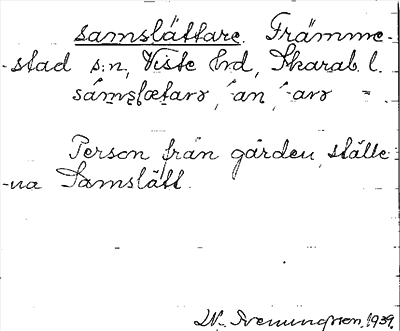 samslättare. Främme-
-stad s:n, Viste hd, Skarab. l.
sámslætarə, -an, -arə =
Person från gården, ställe-
-na Samslätt.
W. Svenungsson. 1939.